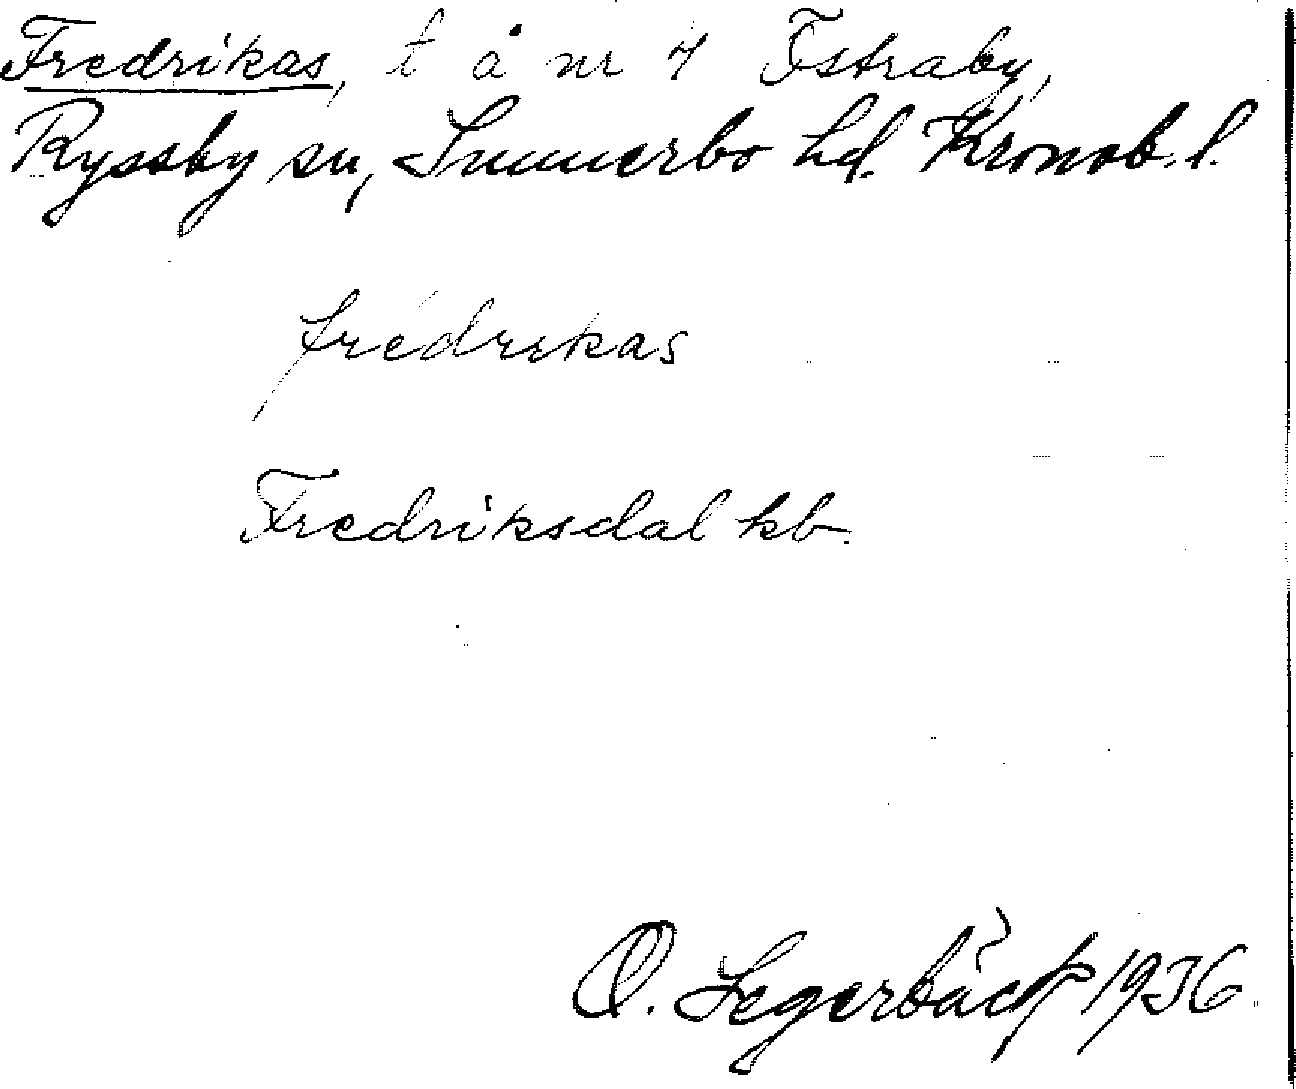 Fredrikas, t å nr 7 Tstraby,
Ryssby sn, Sunnerbo hd. Kronob. l.
frédrekas
Fredriksdal kb.
O. Segerbäck 1936.